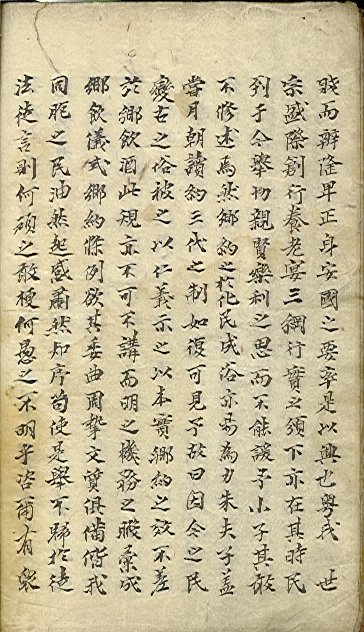 賤而辨隆卑正身安國之要率是以興也粤我 世
宗盛際創行養老宴三綱行實之頒下亦在其時民
到于今擧切親賢樂利之思而不能諼予小子其敢
不修述焉然鄕約之於化民成俗亦易為力朱夫子盖
嘗月朝讀約三代之制如復可見予故曰因今之民
變古之俗被之以仁義示之以本實鄕約之效不差
於鄕飮酒此視亦不可不講而明之機務之暇彙成
鄕飮儀式鄕約條例欲其委曲周摯文質俱備俾我
同胞之民油然起感肅然知序苟使是擧不歸於徒
法徒言則何頑之敢梗何愚之不明乎咨爾有衆